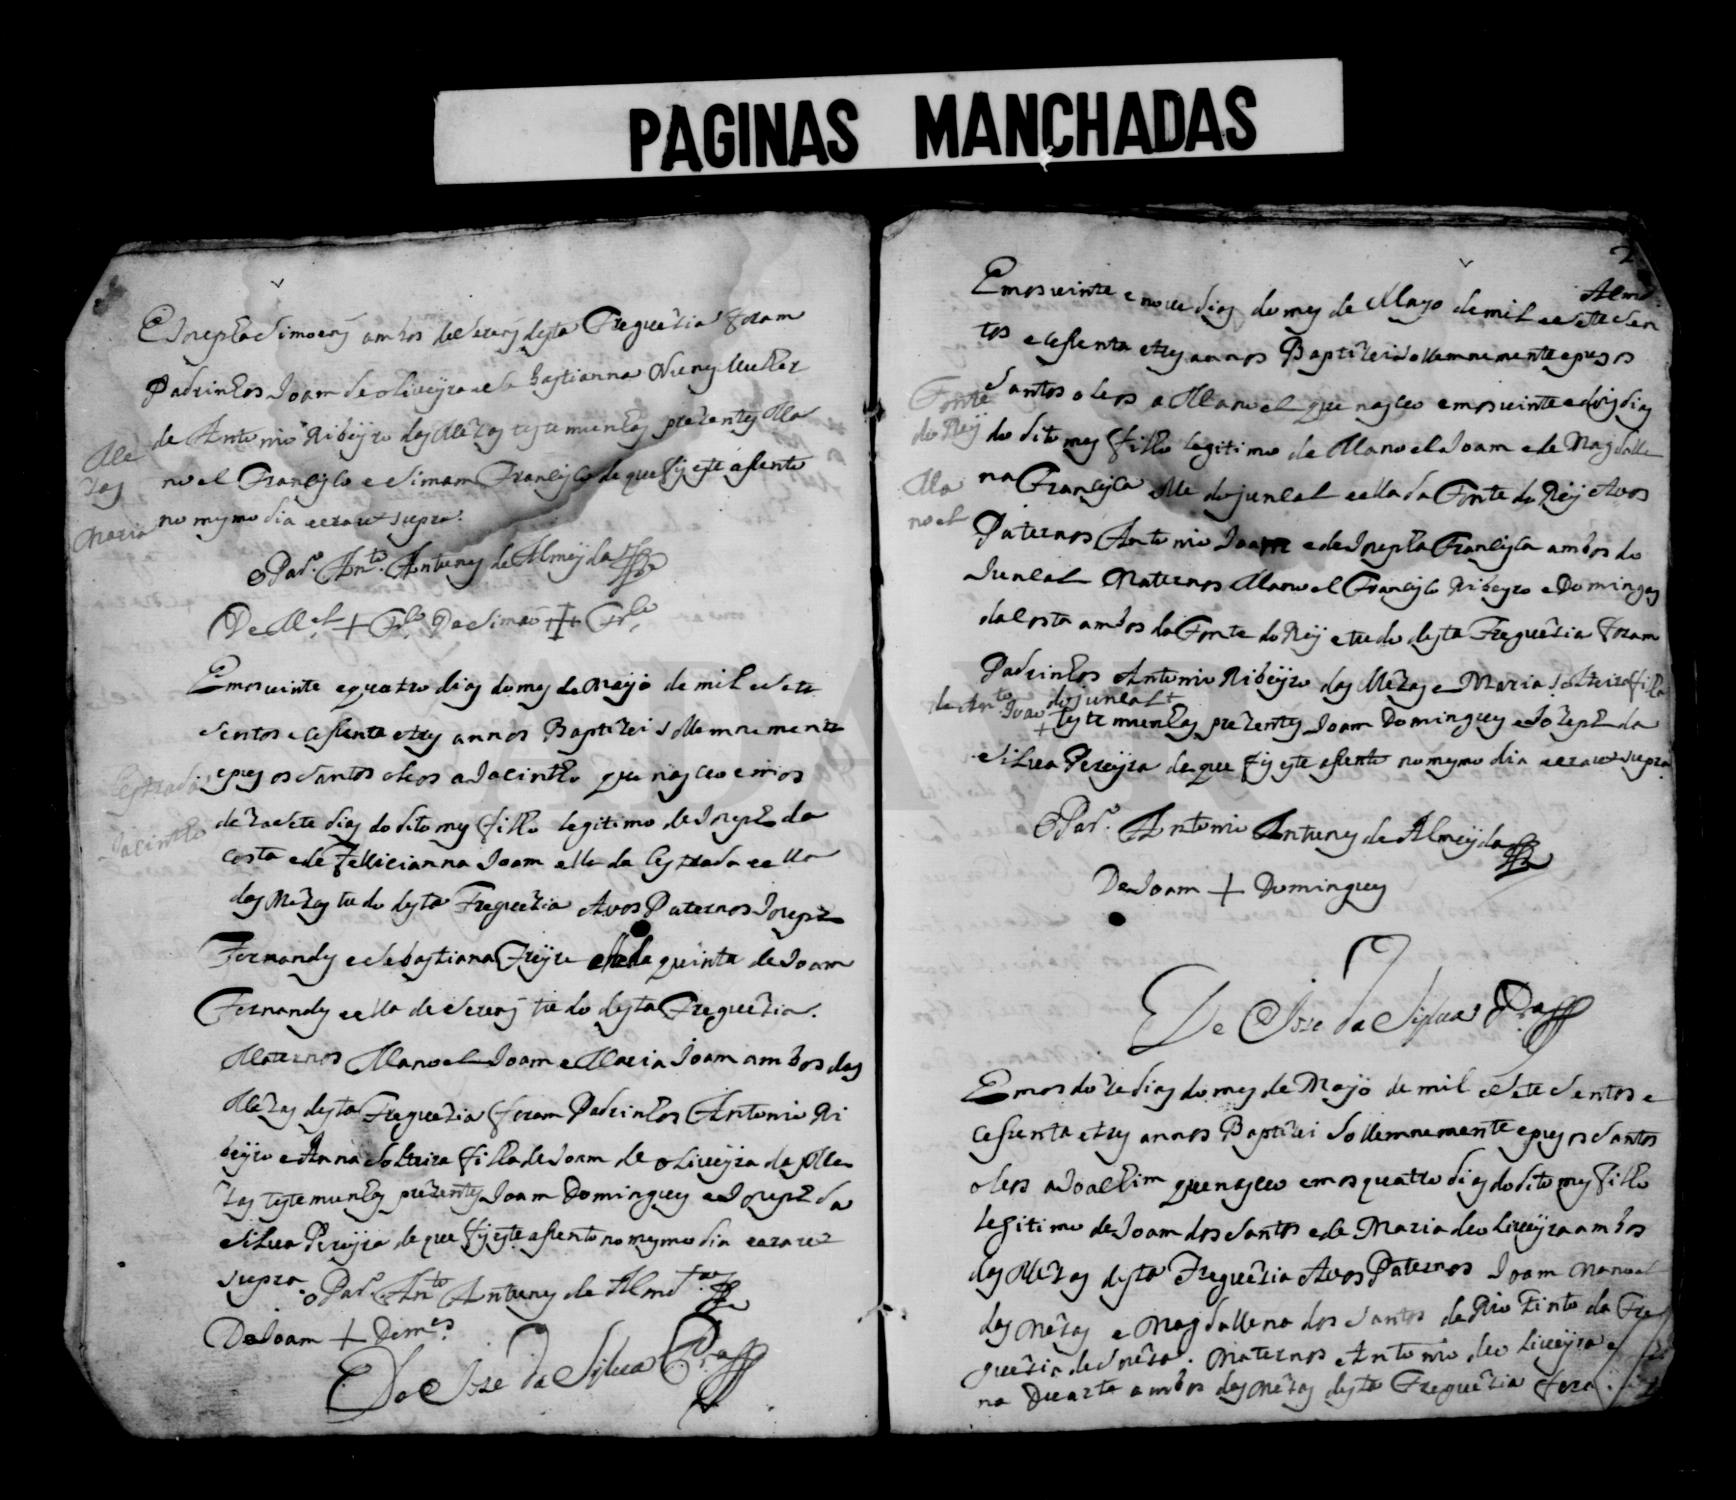 PAGINAS MANCHADAS
E Josepha Simoenz ambos de Serenz desta Freguezia foram
Padrinhos Joam de oliveyra e Sebastianna Nunez Mulher
de Antonio Ribeyro das Mezas testemunhas prezentes Ma
noel Francisco e Simam Francisco de que fiz este asento
no mesmo dia e era ut supra.
Me
zas
Maria
o Pad.e Ant.o Antunes de Almeyda
De M.el + Fr.co De Simaõ + Fr.co
Em os vinte e quatro dias do mes de Mayo de mil e sete
sentos e cesenta e tres annos Baptizei sollemnemente
e pus os Santos oleos a Jacintho que nasceo em os
dezasete dias do dito mes filho legitimo de Joseph da
costa e de Fellicianna Joam elle da Estrada e ella
das Mezas tudo desta Freguezia Avos Paternos Joseph
Fernandes e Sebastiana Freyre elle da quinta de Joam
Fernandes e ella de Serenz tudo desta Freguezia.
Maternos Manoel Joam e Maria Joam ambos das
Mezas desta Freguezia foram Padrinhos Antonio Ri
beyro e Anna Solteira filha de Joam de oliveyra das Me
zas testemunhas prezentes Joam Domingues e Joseph da
Silva Pereyra de que fiz este asento no mesmo dia e era ut
supra.
Estrada
Jacintho
o Pad.e Ant.o Antunes de Almd.a
De Joam + Dom.es
De Jose da Silva Pr.a
2
Almd.a
Em os vinte e nove dias do mes de Mayo de mil e sete sen
tos e cesenta e tres annos Baptizei sollemnemente e pus os
Santos oleos a Manoel que nasceo em os vinte e dois dias
do dito mes filho legitimo de Manoel Joam e de Magdalle
na Francisca elle do juncal e ella da Fonte do Rey Avos
Paternos Antonio Joam e de Josepha Francisca ambos do
Juncal Maternos Manoel Francisco Ribeyro e Domingas
da Costa ambos da Fonte do Rey e tudo desta Freguezia foram
Padrinhos Antonio Ribeyro das Mezas e Maria Solteira filha
de Ant.o Joaõ do juncal +
+ testemunhas prezentes Joam Domingues e Joseph da
Silva Pereyra de que fiz este asento no mesmo dia e era ut supra
Fonte
do Rey
Ma
noel
o Pad.e Antonio Antunes de Almeyda
De Joam + Domingues
De Jose da Silva Pr.a
Em os doze dias do mes de Mayo de mil e sete sentos e
cesenta e tres annos Baptizei sollemnemente e pus os Santos
oleos a Joachim que nasceo em os quatro dias do dito mes filho
legitimo de Joam dos Santos e de Maria de oliveyra ambos
das Mezas desta Freguezia Avos Paternos Joam Manoel
das Mezas e Magdallena dos Santos de Rio Tinto da Fre
guezia de Soza. Maternos Antonio de oliveyra e
na Duarte ambos das Mezas desta Freguezia